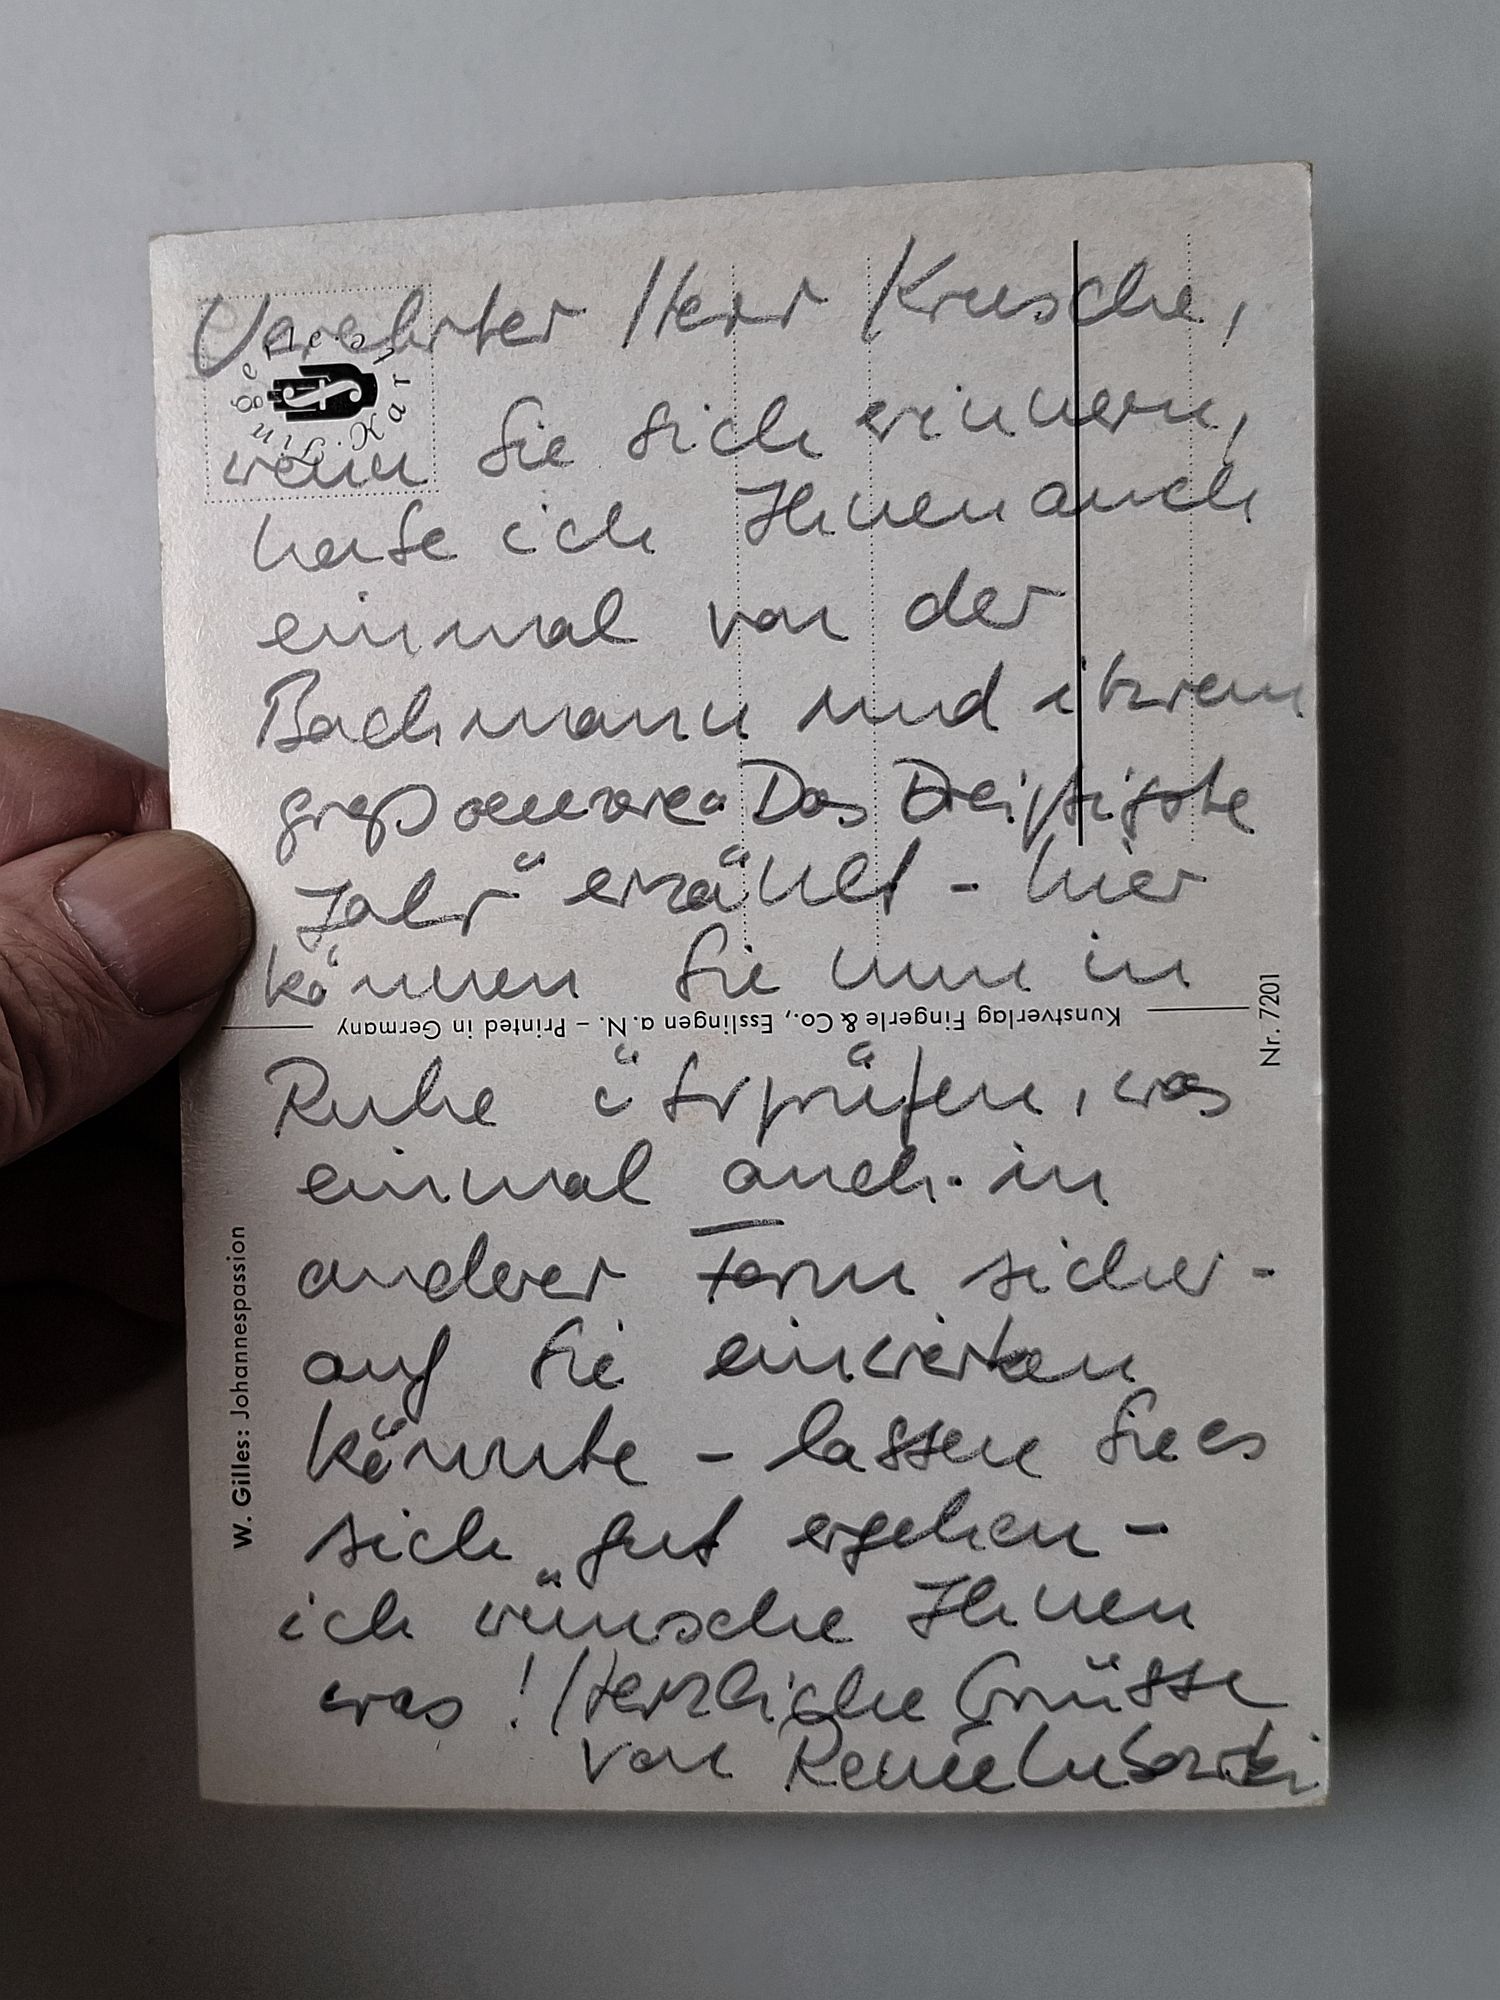 Verehrter Herr Krusche,
wenn Sie sich erinnern,
hatte ich Ihnen auch
einmal von der
Bachmann und ihrem
"Das Dreißigste
Jahr" erzählt - hier
können Sie nun in
Kunstverlag Fingerle & Co., Esslingen a. N. – Printed in Germany
Nr. 7201
Ruhe überprüfen, was
einmal auch in
anderer Form sicher-
auf Sie einwirken
könnte - lassen Sie es
sich gut ergehen -
ich wünsche Ihnen
was! Herzliche Grüsse
von
W. Gilles: Johannespassion
Fingerle Karte